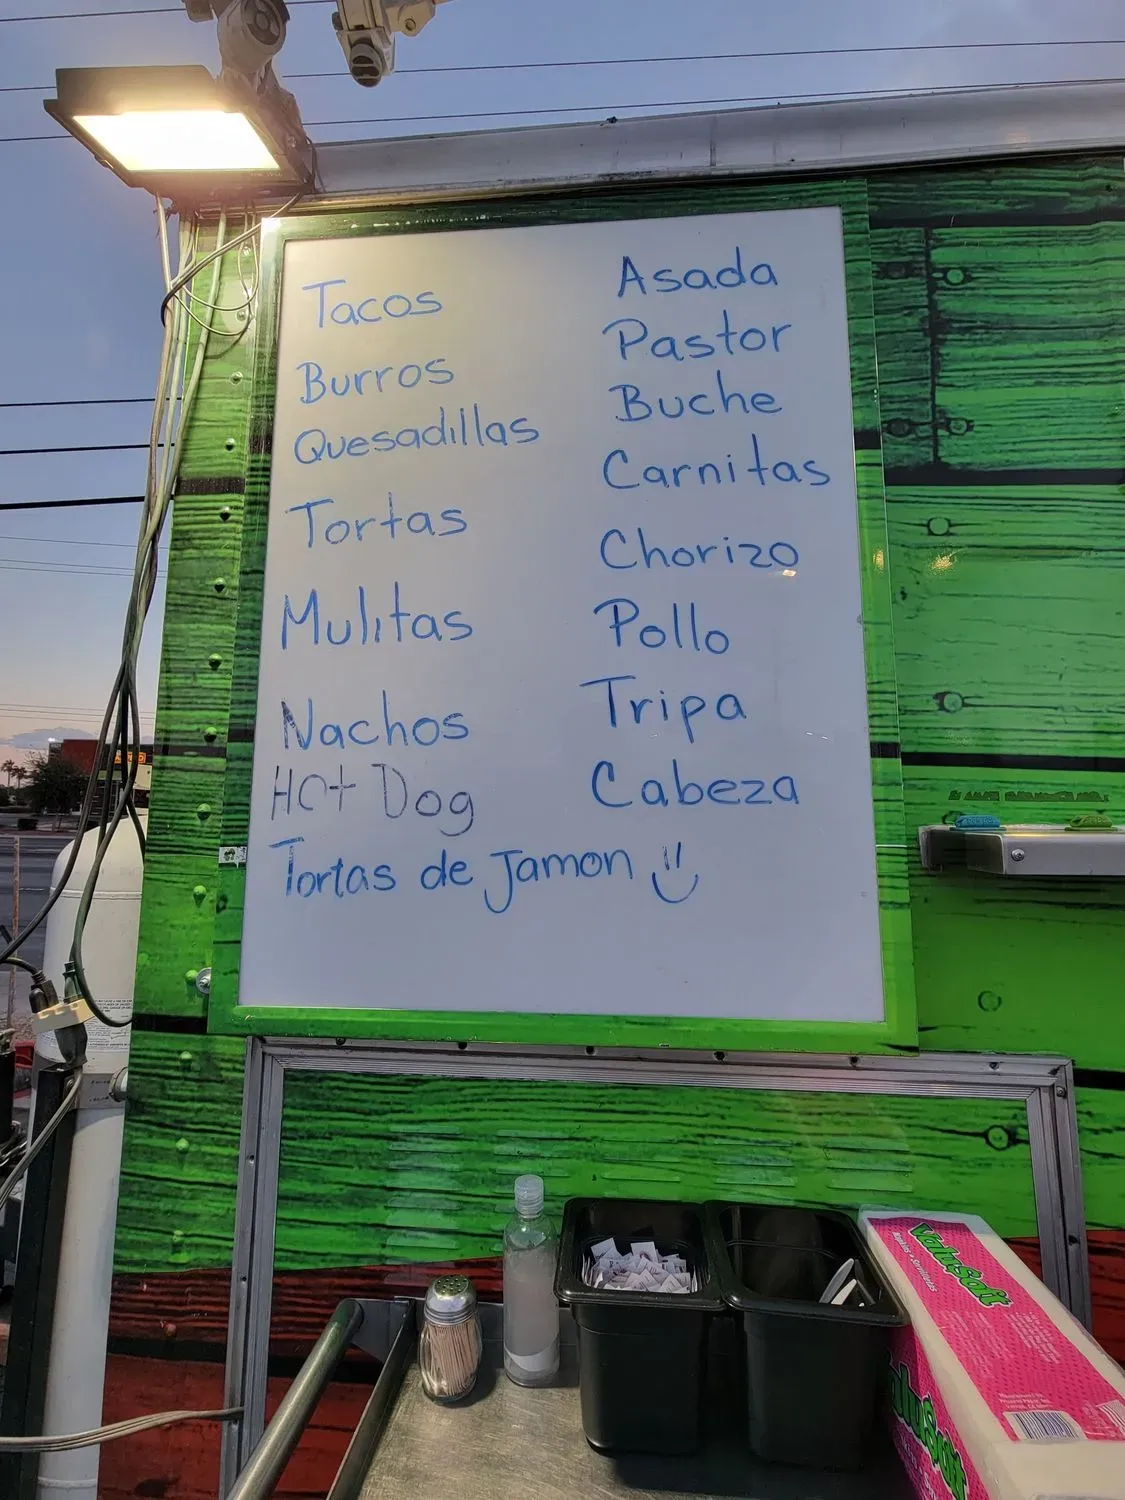 Tacos
Burros
Quesadillas
Tortas
Mulitas
Nachos
Hot Dog
Tortas de Jamon
Asada
Pastor
Buche
Carnitas
Chorizo
Pollo
Tripa
Cabeza
ValuSoft
Napkins • Servilletas